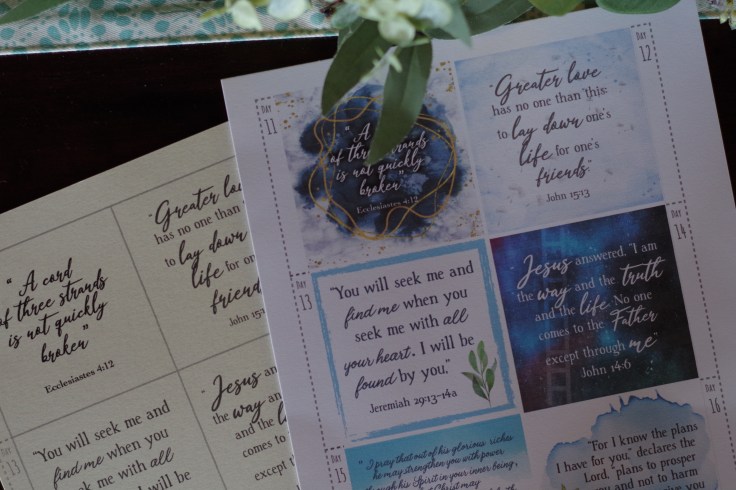 DAY 11
"A
of three strands
is not quickly
broken."
Ecclesiastes 4:12
DAY 12
"Greater love
has no one than this:
to lay down one's
life for one's
friends."
John 15:13
DAY 13
"You will seek me and
find me when you
seek me with all
your heart. I will be
found by you."
Jeremiah 29:13-14a
DAY 14
Jesus answered, "I am
the way and the truth
and the life. No one
comes to the Father
except through me"
John 14:6
DAY 15
"I pray that out of his glorious riches
he may strengthen you with power
through his Spirit in your inner being,
Christ may
DAY 16
"For I know the plans
I have for you," declares the
Lord, "plans to prosper
you and not to harm
give you
"A cord
of three strands
is not quickly
broken"
Ecclesiastes 4:12
"Greater lov
has no one than
to lay down
life for on
friend
John 15:1
13
"You will seek me and
find me when you
seek me with all
I will be
"Jesus an
the way an
and the li
comes to
except